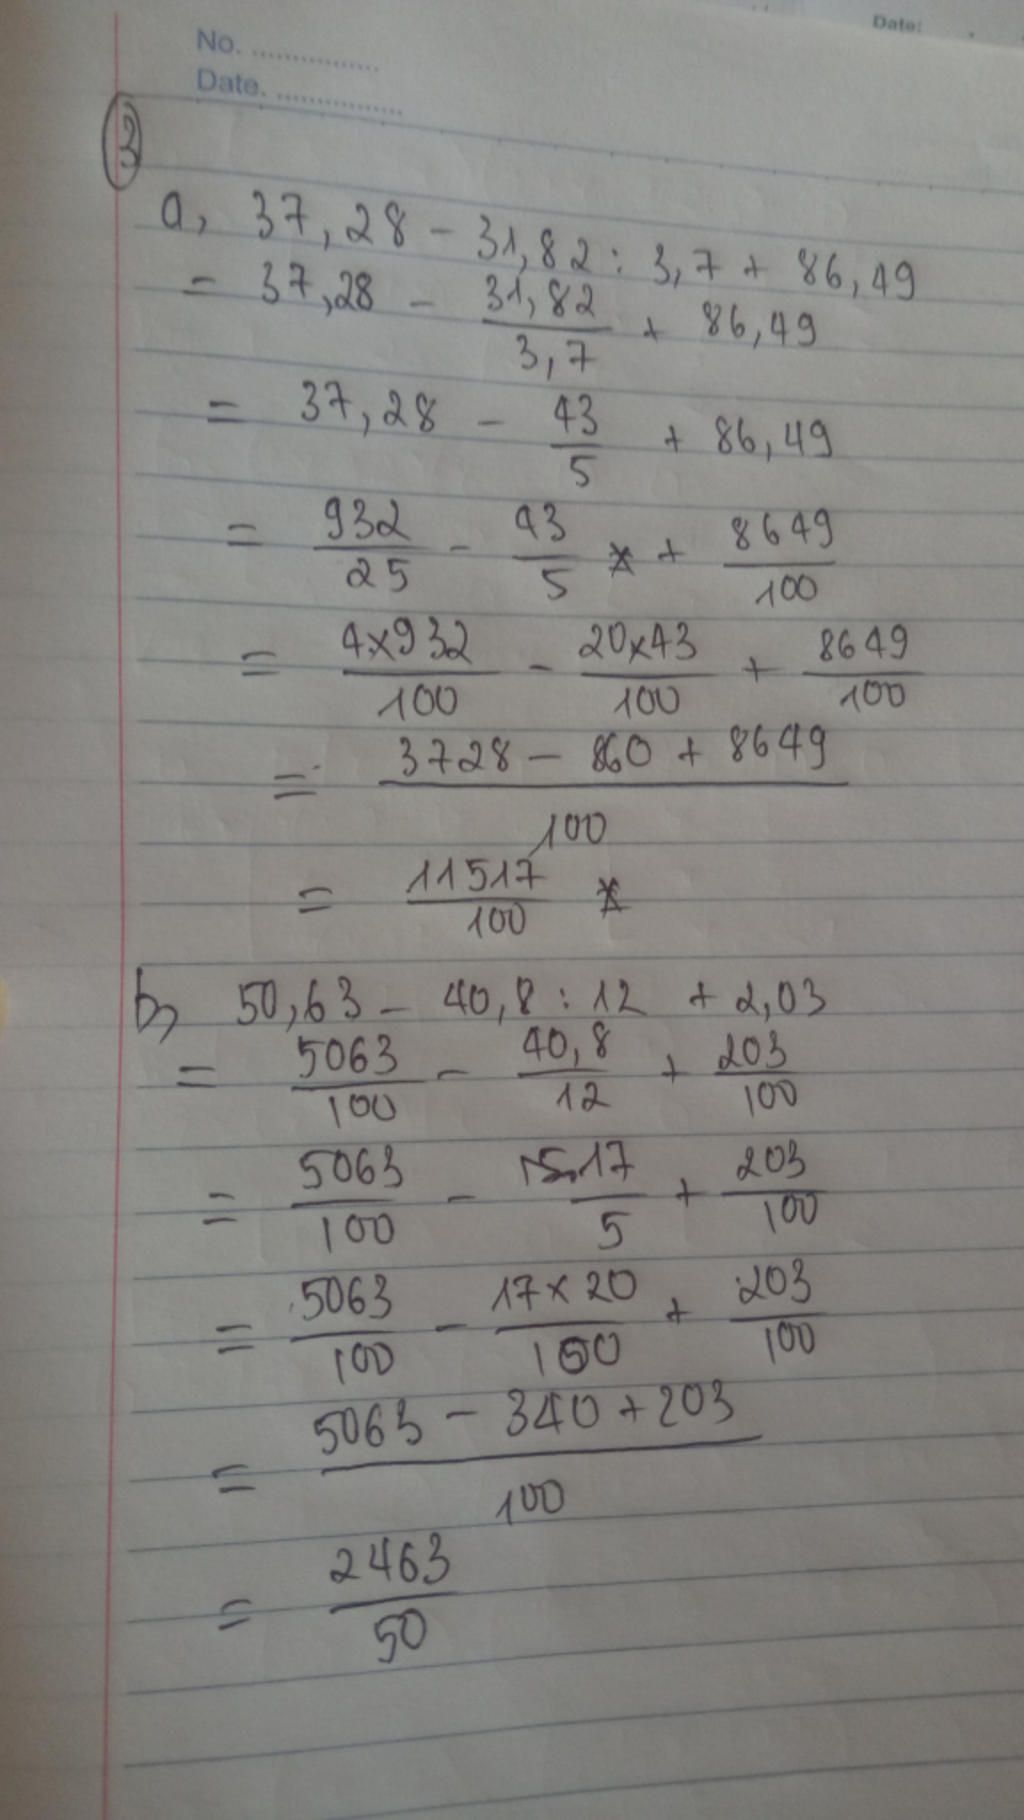 Date:
No. ...............
Date. ...............
3
a, 37,28 - 31,82 : 3,7 + 86,49
= 37,28 - 31,82/3,7 + 86,49
= 37,28 - 43/5 + 86,49
= 932/25 - 43/5 + 8649/100
= 4×932/100 - 20×43/100 + 8649/100
= 3728 - 860 + 8649/100
= 11517/100
b, 50,63 - 40,8 : 12 + 2,03
= 5063/100 - 40,8/12 + 203/100
= 5063/100 - 17/5 + 203/100
= 5063/100 - 17×20/100 + 203/100
= 5063 - 340 + 203/100
= 2463/50